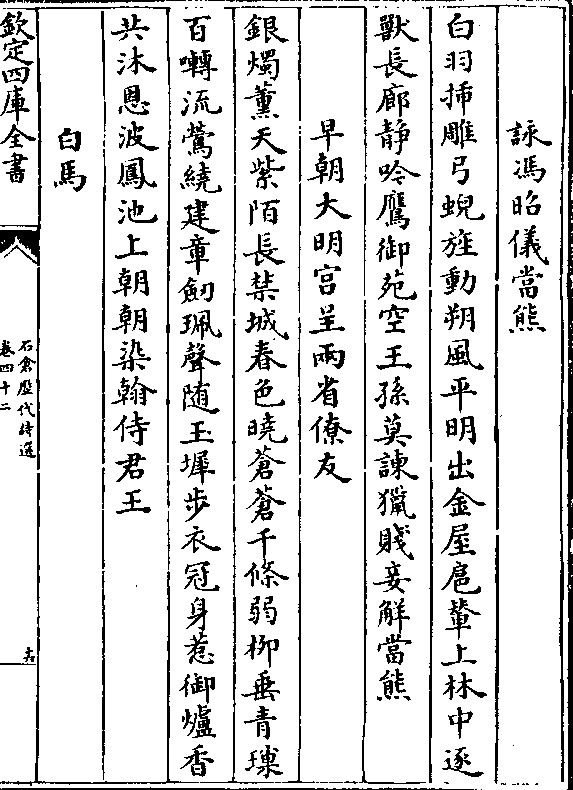 詠馮昭儀當熊
白羽揷雕弓蜺旌動朔風平明出金屋扈輦上林中逐
獸長廊靜吟鷹御苑空王孫莫諫獵賤妾解當熊
早朝大明宫呈兩省僚友
銀燭薰天紫陌長禁城春色曉蒼蒼千條弱柳垂青瑣
百囀流鶯繞建章劒珮聲随玉墀步衣冠身惹御爐香
共沐恩波鳳池上朝朝染翰侍君王
白馬
欽定四庫全書
石倉歷代詩選
卷四十二